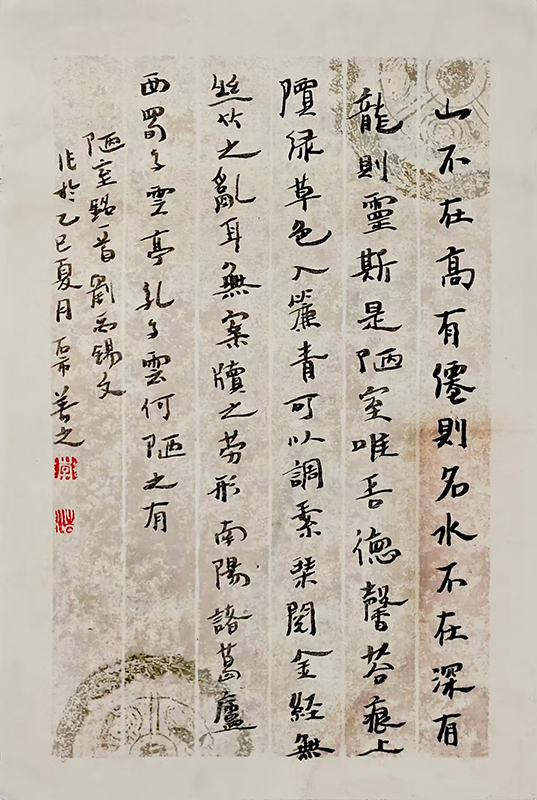 山不在高有僊則名水不在深有
龍則靈斯是陋室唯吾德馨苔痕上
階緑草色入簾青可以調素琴閲金經無
絲竹之亂耳無案牘之勞形南陽諸葛廬
西蜀子雲亭孔子雲何陋之有
陋室銘一首劉禹錫文
作於乙巳夏月善之